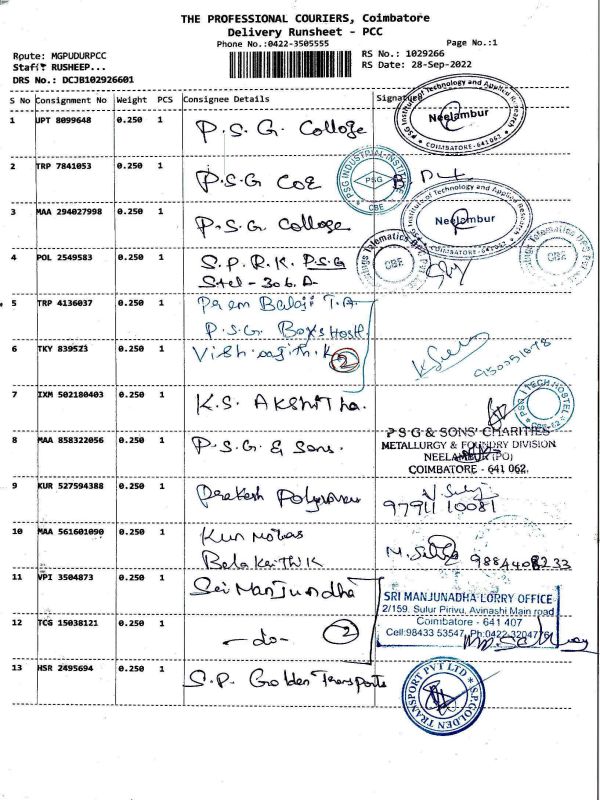 THE PROFESSIONAL COURIERS, Coimbatore
Delivery Runsheet - PCC
Phone No.:0422-3505555
Page No.:1
Route: MGPUDURPCC
RS No.: 1029266
Staff RUSHEEP...
RS Date: 28-Sep-2022
DRS No.: DCJB102926601
S No Consignment No Weight PCS Consignee Details Signature
1 UPT 8099648 0.250 1 P.S.G. College
PSG Institute of Technology and Applied Research
Neelambur
COIMBATORE-641062
2 TRP 7841053 0.250 1 P.S.G COE
PSG INDUSTRIAL INSTITUTE
PSG
CBE
3 MAA 294027998 0.250 1 P.S.G. College
Institute of Technology and Applied Research
Neelambur
COIMBATORE-641
4 POL 2549583 0.250 1 S.P.R.K. PSG
Stel - 306. A
Telematics
CBE
5 TRP 4136037 0.250 1 Prem Balaji T.A
P.S.G. Boys Hostl
6 TKY 839523 0.250 1
2
7 IXM 502180403 0.250 1 K.S. Akshitha.
PSG I TECH HOSTEL
8 MAA 858322056 0.250 1 P.S.G. & Sons.
PSG & SONS' CHARITIES
METALLURGY & FOUNDRY DIVISION
NEELAMBUR (PO)
COIMBATORE - 641 062.
9 KUR 527594388 0.250 1 Prakash
97911 10081
10 MAA 561601090 0.250 1
11 VPI 3504873 0.250 1 Sri Manjundha
SRI MANJUNADHA LORRY OFFICE
2/159. Sulur Pirivu, Avinashi Main road
Coimbatore - 641 407
Cell:98433 53547, Ph:0422-3204776
12 TCG 15038121 0.250 1 - do -
2
13 HSR 2495694 0.250 1 S.P. Golden Transports
S.P.GOLDEN TRANSPORT PVT LTD